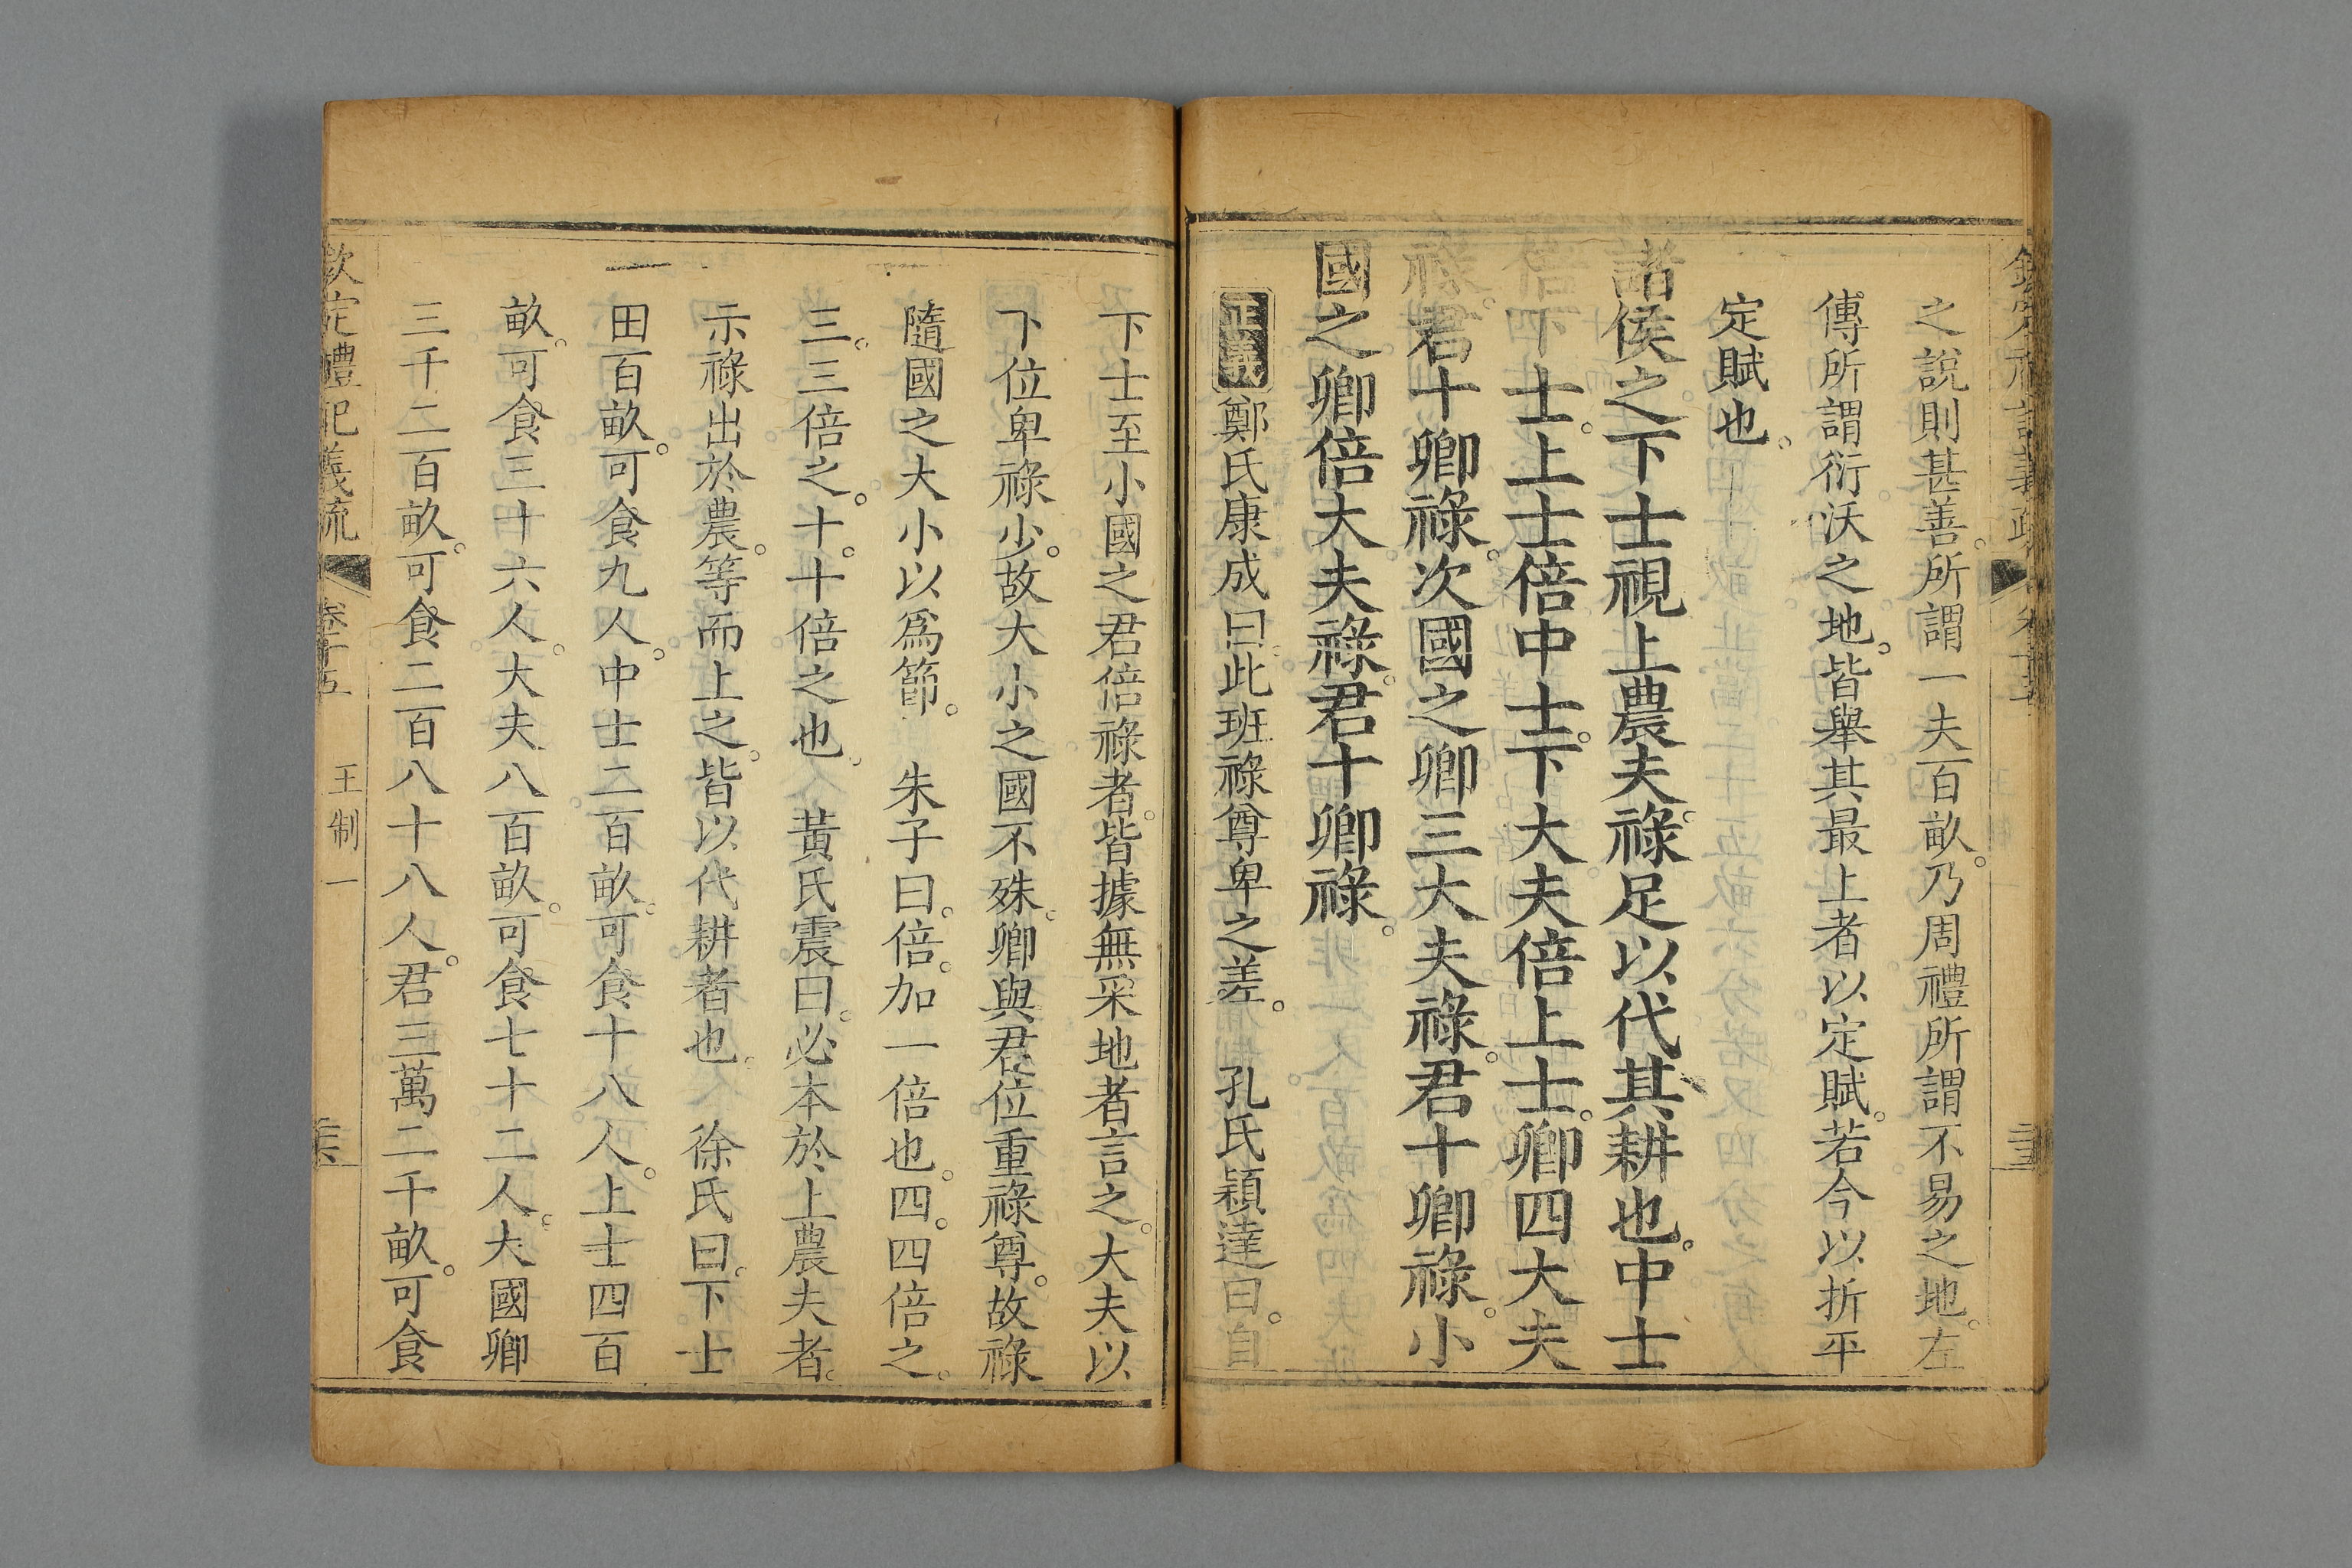 之說則甚善。所謂一夫百畝。乃周禮所謂不易之地。左
傳所謂衍沃之地。皆舉其最上者以定賦。若今以折平
定賦也。
諸侯之下士視上農夫。祿足以代其耕也。中士
下士。上士倍中士。下大夫倍上士。卿四大夫
祿。君十卿祿。次國之卿三大夫祿。君十卿祿。小
國之卿倍大夫祿。君十卿祿。
正義鄭氏康成曰。此班祿尊卑之差。 孔氏穎達曰。自
下士至小國之君倍祿者。皆據無采地者言之。大夫以
下位卑祿少。故大小之國不殊。卿與君位重祿尊。故祿
隨國之大小以爲節。 朱子曰。倍。加一倍也。四。四倍之。
三。三倍之。十。十倍之也。 黃氏震曰。必本於上農夫者。
示祿出於農。等而上之。皆以代耕者也。 徐氏曰。下士
田百畝。可食九人。中士二百畝。可食十八人。上士四百
畝。可食三十六人。大夫八百畝。可食七十二人。大國卿
三千二百畝。可食二百八十八人。君三萬二千畝。可食
欽定禮記義疏 卷十五 王制一